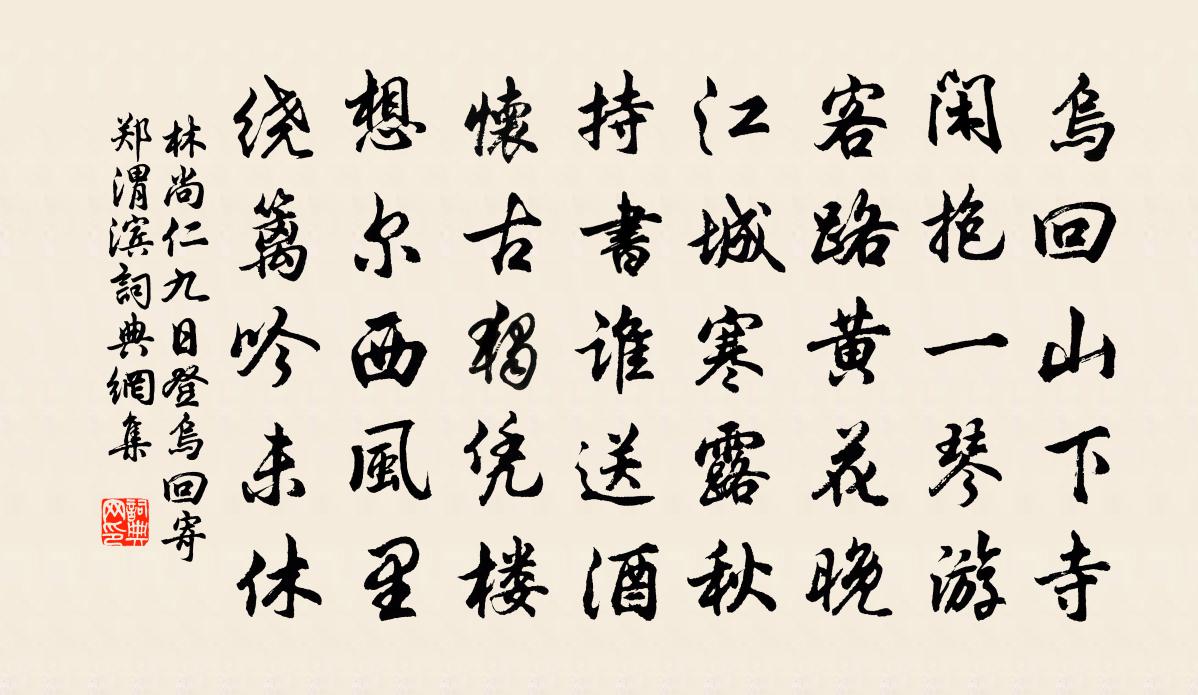 烏回山下寺
闲抱一琴游
客路黄花晚
江城寒露秋
持書谁送酒
懷古独凭楼
想尔西風里
绕篱吟未休
林尚仁九日登烏回寄
郑渭滨詞典網集
詞典网印